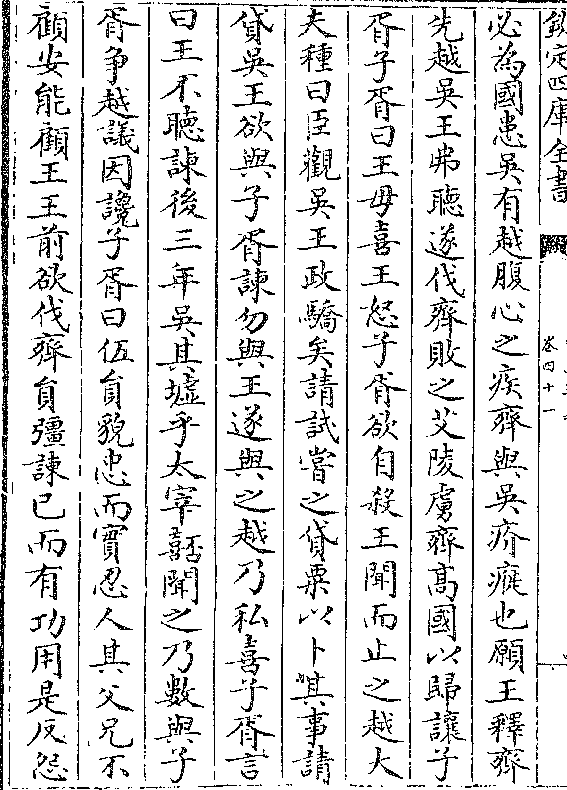 欽定四庫全書
卷四十一
必為國患吳有越腹心之疾齊與吳疥癬也願王釋齊
先越吳王弗聽遂伐齊敗之艾陵虜齊髙國以歸讓子
胥子胥曰王毋喜王怒子胥欲自殺王聞而止之越大
夫種曰臣觀吳王政驕矣請試嘗之貸粟以卜其事請
貸吳王欲與子胥諫勿與王遂與之越乃私喜子胥言
曰王不聽諫後三年吳其墟乎太宰嚭聞之乃數與子
胥争越議因讒子胥曰伍員貌忠而實忍人其父兄不
顧安能顧王王前欲伐齊員彊諫已而有功用是反怨